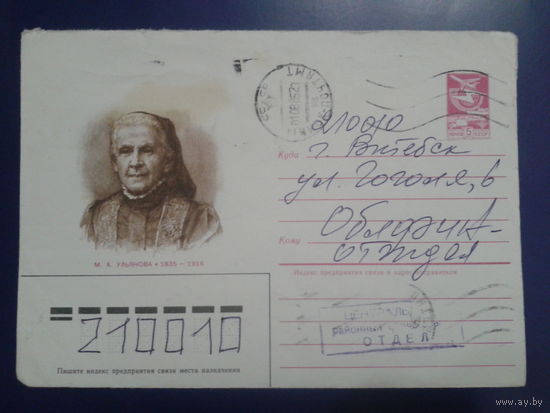 ПОЧТА СССР
5
ПОЧТАМТ
210010
Куда
г. Витебск
ул. Гоголя, 6
Кому
Облфин-
отдел
Индекс предприятия связи и адрес отправителя
М. А. УЛЬЯНОВА • 1835 – 1916
ЦЕНТРАЛЬ
РАЙОННЫЙ
ОТДЕЛ
Пишите индекс предприятия связи места назначения
www.ay.by